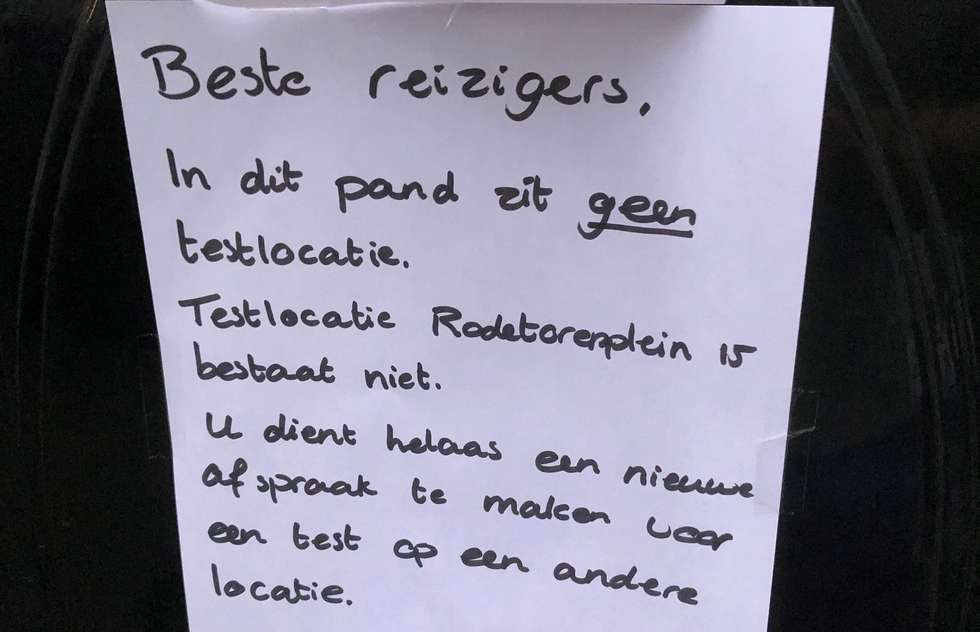 Beste reizigers,
In dit pand zit geen
testlocatie.
Testlocatie Rodetorenplein 15
bestaat niet.
U dient helaas een nieuwe
afspraak te maken voor
een test op een andere
locatie.